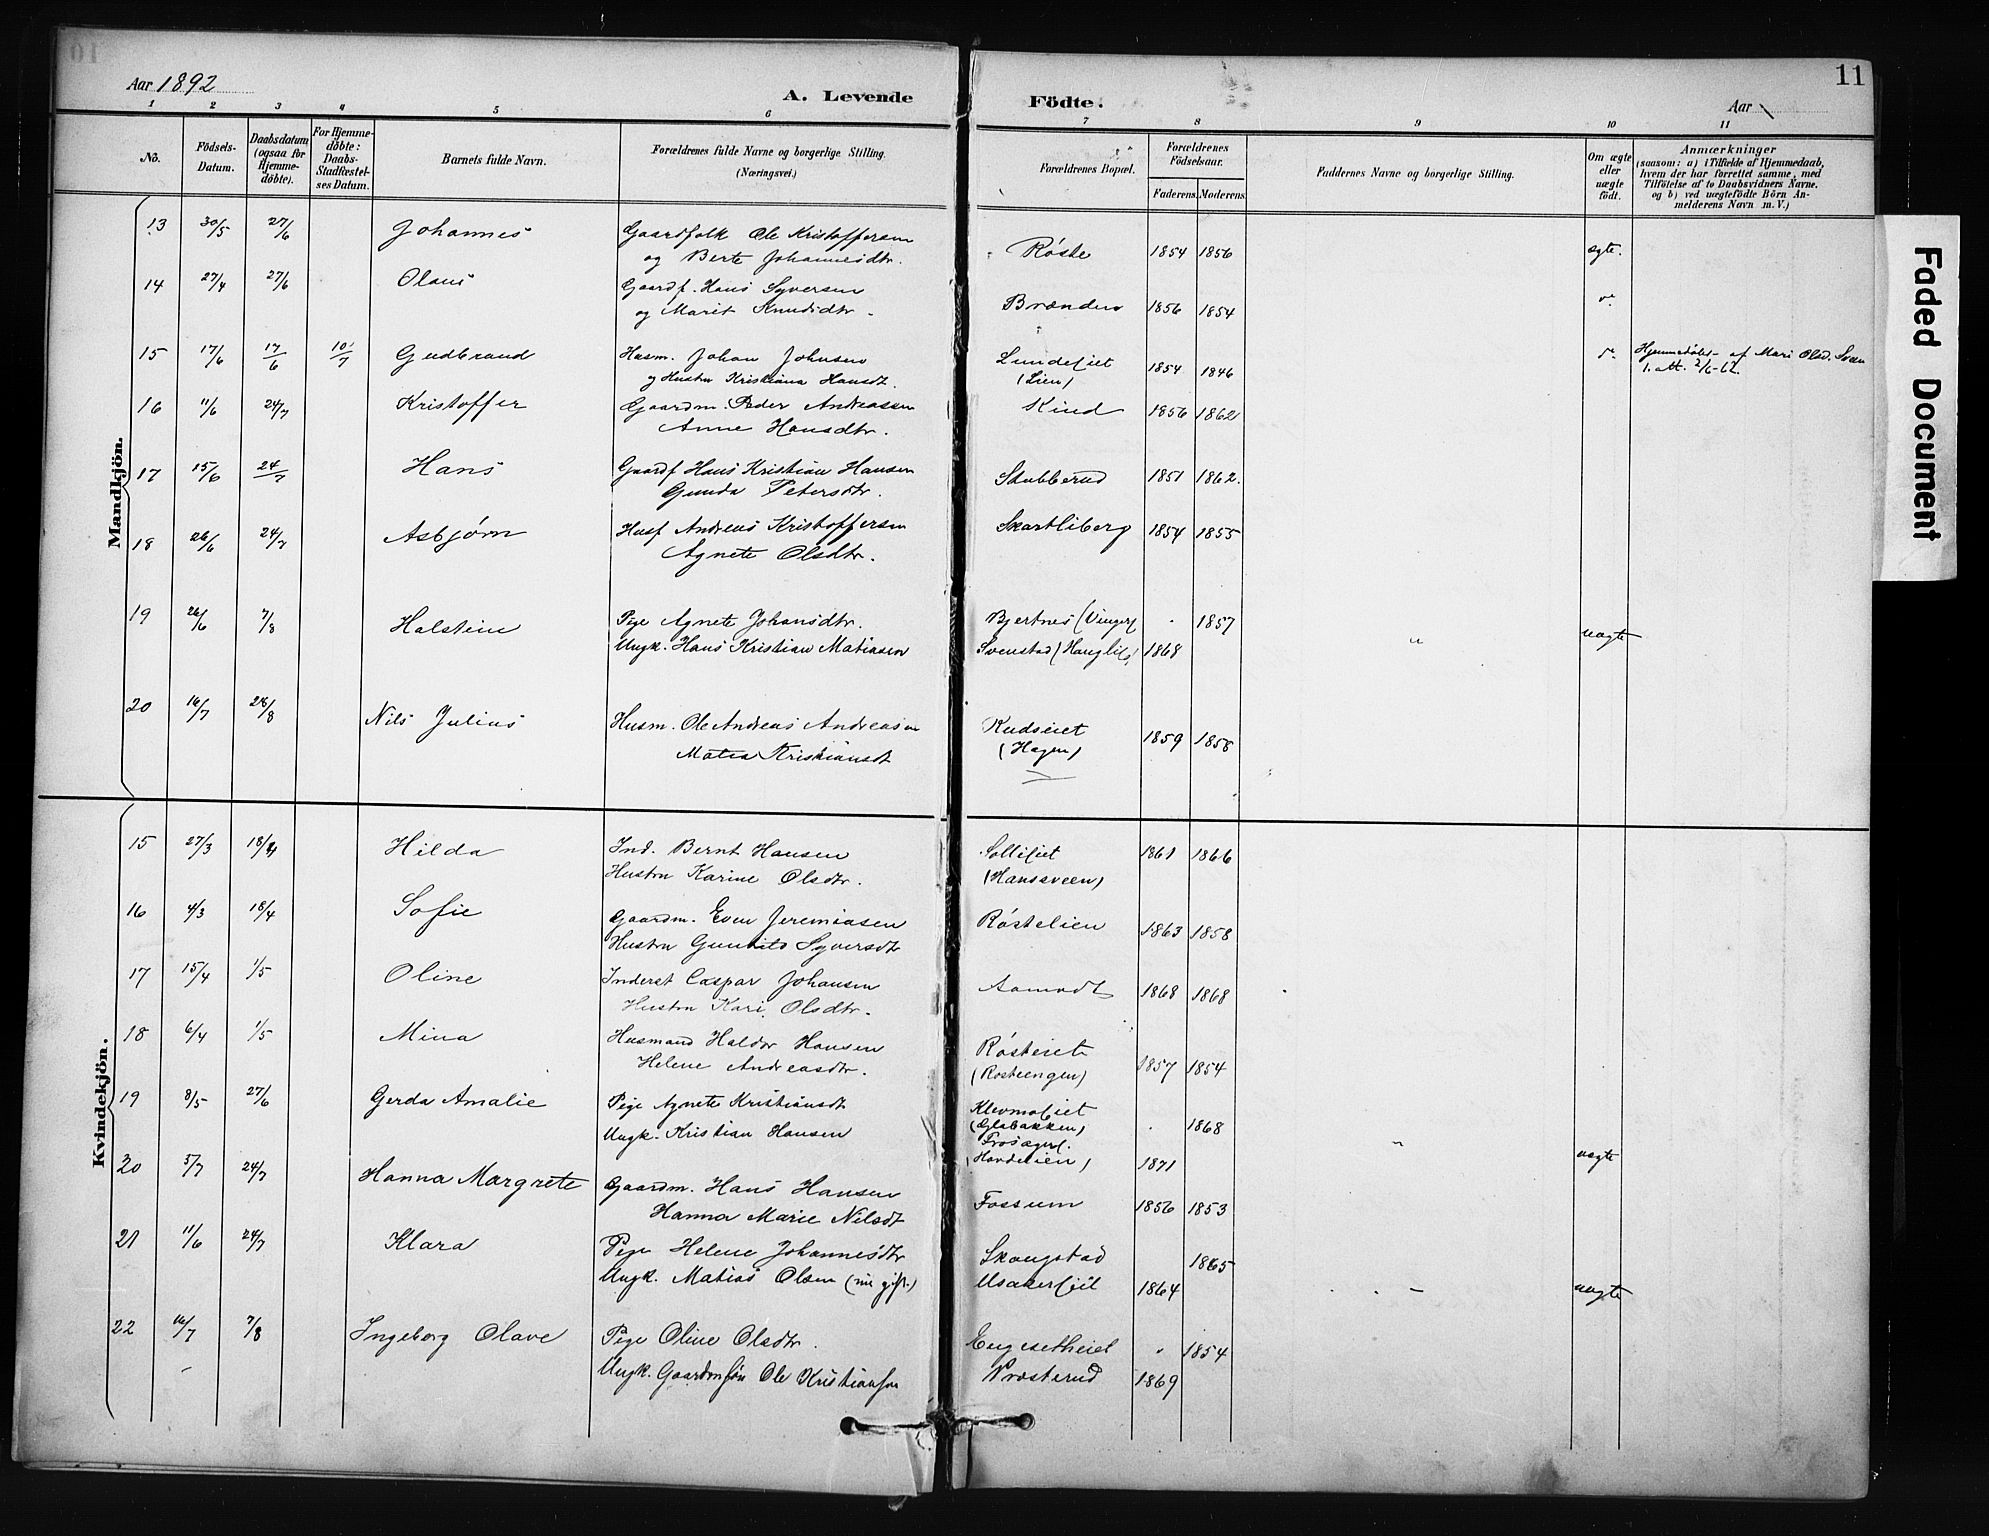 Aar 1892
A. Levende Födte.
Aar
11
1 2 3 4 5 6 7 8 9 10 11
No.
Födsels-Datum.
Daabsdatum (ogsaa for Hjemme-döbte).
For Hjemme-döbte: Daabs-Stadfæstelses Datum.
Barnets fulde Navn.
Forældrenes fulde Navne og borgerlige Stilling. (Næringsvei.)
Forældrenes Bopæl.
Forældrenes Födselsaar.
Faderens. Moderens.
Faddernes Navne og borgerlige Stilling.
Om ægte eller uægte födt.
Anmærkninger
(saasom: a) i Tilfælde af Hjemmedaab, hvem der har forrettet samme, med Tilföielse af to Daabsvidners Navne. og b) ved uægtefödte Börn Anmelderens Navn m. V.)
Faded Document
Mandkjön.
13 30/5 27/6 Johannes Gaardfolk Ole Kristoffersen Røste 1854 1856 ægte.
og Berte Johannesdtr.
14 27/4 27/6 Olaus Gaardf. Hans Syversen Brænden 1856 1854
og Marit Knudsdtr.
15 17/6 17/6 10/7 Gudbrand Husm. Johan Johnsen Lundeeiet 1854 1846 Hjemmedøbt af Mari Olsd. Sveen
og Hustru Kristiana Hansdt. (Lien)
16 11/6 24/7 Kristoffer Gaardm. Peder Andreassen Kind 1856 1862
Anne Hansdtr.
17 15/6 24/7 Hans Gaardf Hans Kristian Hansen Stubberud 1851 1862.
Gunda Petersdtr.
18 26/6 24/7 Asbjørn Husf Andreas Kristoffersen Skartliberg 1854 1855
Agnete Olsdtr.
19 26/6 7/8 Halstein Pige Agnete Johansdtr. Bjertnes (Vinger) 1857
Ungk. Hans Kristian Matiasen Svenstad 1868 " uægte
20 16/7 28/8 Nils Julius Husm. Ole Andreas Andreasen Rudseiet 1859 1858
Matea Kristiansdt (Hagen)
Kvindekjön.
15 27/3 18/4 Hilda Ind. Bernt Hansen Sollieiet 1861 1866
Hustru Karine Olsdtr. (Hanssveen)
16 4/3 18/4 Sofie Gaardm. Even Jeremiasen Røstelien 1863 1858
Hustru Gunhild Syversdt
17 15/4 1/5 Oline Inderst Caspar Johansen Aamodt 1868 1868
Hustru Kari Olsdtr.
18 6/4 1/5 Mina Husmand Haldor Hansen Røsteiet 1857 1854
Helene Andreasdtr. (Rosteengen)
19 8/5 27/6 Gerda Amalie Pige Agnete Kristiansdt Klevmoeiet 1868
(Glabakken)
Ungk. Kristian Hansen 1871 uægte
20 5/7 24/7 Hanna Margrete Gaardm. Hans Hansen Fossum 1856 1853
Hanna Marie Nilsdt
21 11/6 24/7 Klara Pige Helene Johannesdtr Skougstad 1865
Ungk. Matias Olsen 1864 uægte
22 16/7 7/8 Ingeborg Olave Pige Oline Olsdtr. Engesetheiet 1854
Ungk. Gaardmssøn Ole Kristiansen Præsterud 1869